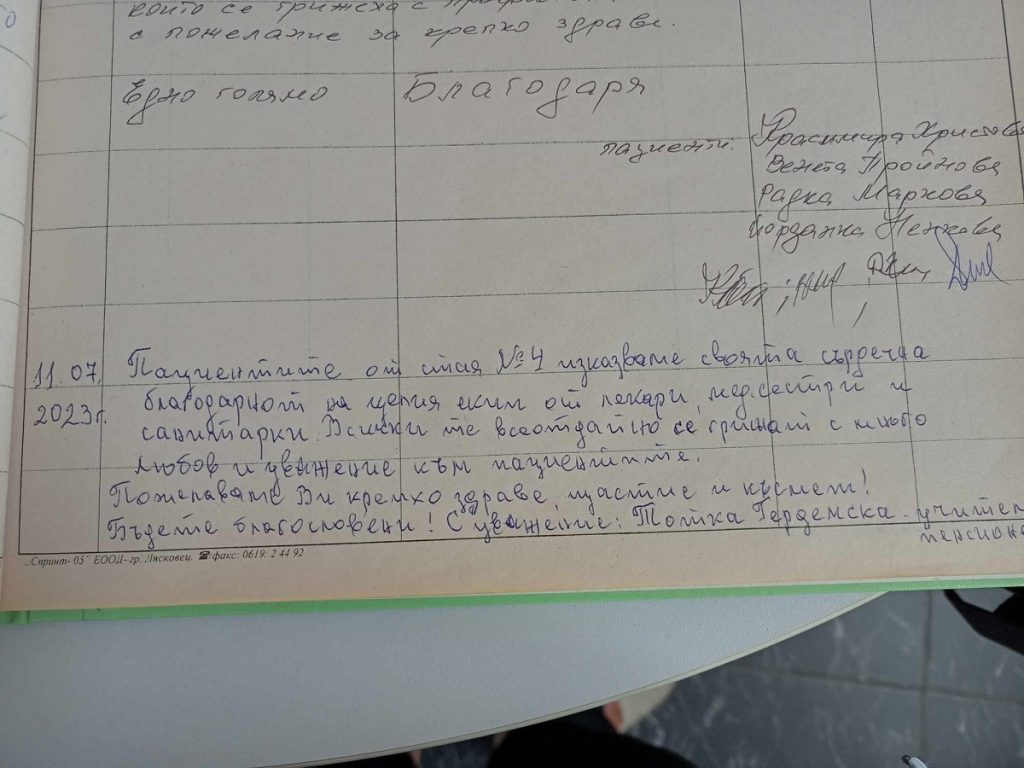 които се грижеха с
с пожелание за крепко здраве.
Едно голямо Благодаря
пациенти: Красимира Христова
Венета Тройнова
Радка Маркова
Йорданка Ненкова
11.07. Пациентите от стая №4 изказваме своята сърдечна
2023г. благодарност на целия екип от лекари, медсестри и
санитарки. Всички те всеотдайно се грижат с много
любов и уважение към пациентите.
Пожелаваме Ви крепко здраве, щастие и късмет!
Бъдете благословени! С уважение: Тотка Гердемска - учител
пенсионе
„Спринт- 05" ЕООД- гр. Лясковец. ☎факс: 0619/ 2 44 92